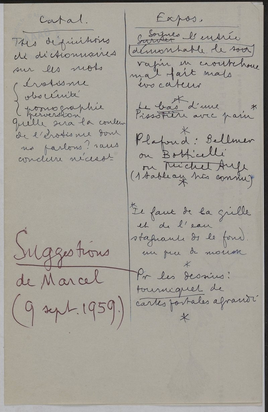 Catal.
Très définitions
de dictionnaires
sur les mots
érotisme
obscénité
pornographie
perversion
Quelle sera la
de l'érotisme dont
nous parlons? sans
conclure nécess
Suggestions
de Marcel
(9 sept. 1959.)
Expos.
l'entrée
démontable de
vagin en caoutchouc
mal fait mais
évocateur
*
Le bas d'une
Pissotière avec
*
Plafond: Bellmer
ou Botticelli
ou Michel Ange
(1 tableau très connu)
*
*Il faut de la grille
et de l'eau
stagnante ds le fond
un peu de mousse
*
Pr les dessins:
tourniquet de
cartes postales agrandi
*